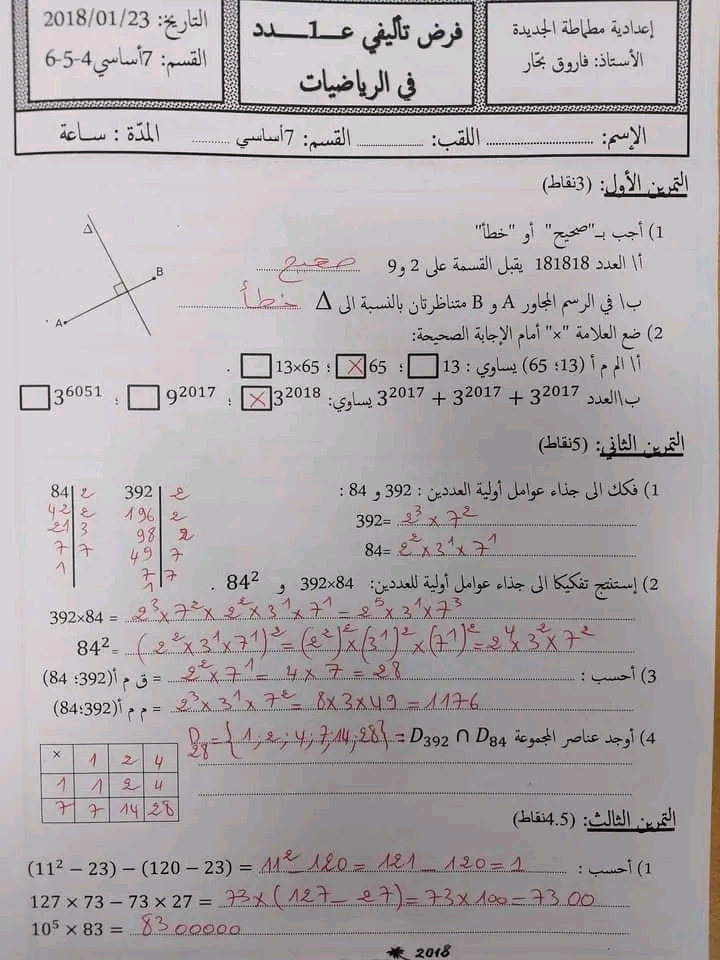 إعدادية مطماطة الجديدة
الأستاذ: فاروق بخّار
فرض تأليفي عـــ1ـــدد
في الرياضيات
التاريخ: 2018/01/23
القسم: 7أساسي4-5-6
الإسم: .............................. اللقب: .................... القسم: 7أساسي .......... المدّة : ســاعة
التمرين الأول: (3نقاط)
1) أجب بـ"صحيح" أو "خطأ"
أ\ العدد 181818 يقبل القسمة على 2 و9 صحيح
ب\ في الرسم المجاور A و B متناظرتان بالنسبة الى Δ خطأ
Δ
B
A
2) ضع العلامة "×" أمام الإجابة الصحيحة:
أ\ الم م أ (13؛ 65) يساوي : 13 ؛ 65 × ؛ 13×65 .
ب\العدد 3^2017 + 3^2017 + 3^2017 يساوي: 3^2018 × ؛ 9^2017 ؛ 3^6051
التمرين الثاني: (5نقاط)
1) فكك الى جذاء عوامل أولية العددين : 392 و 84 :
392= 2^3 × 7^2
84= 2^2 × 3^1 × 7^1
84 | 2
42 | 2
21 | 3
7 | 7
1
392 | 2
196 | 2
98 | 2
49 | 7
7 | 7
1
2) إستنتج تفكيكا الى جذاء عوامل أولية للعددين: 392×84 و 84² .
392×84 = 2^3 × 7^2 × 2^2 × 3^1 × 7^1 = 2^5 × 3^1 × 7^3
84² = (2^2 × 3^1 × 7^1)^2 = (2^2)^2 × (3^1)^2 × (7^1)^2 = 2^4 × 3^2 × 7^2
3) أحسب : ق م أ(392؛ 84) = 2^2 × 7^1 = 4 × 7 = 28
م م أ(392؛84) = 2^3 × 3^1 × 7^2 = 8×3×49 = 1176
4) أوجد عناصر المجموعة D392 ∩ D84 = {1;2;4;7;14;28} = D28
× 1 2 4
1 1 2 4
7 7 14 28
التمرين الثالث: (4.5نقاط)
1) أحسب : (11² − 23) − (120 − 23) = 11² − 120 = 121 − 120 = 1
127 × 73 − 73 × 27 = 73×(127 − 27) = 73×100 = 7300
10^5 × 83 = 8300000
2018